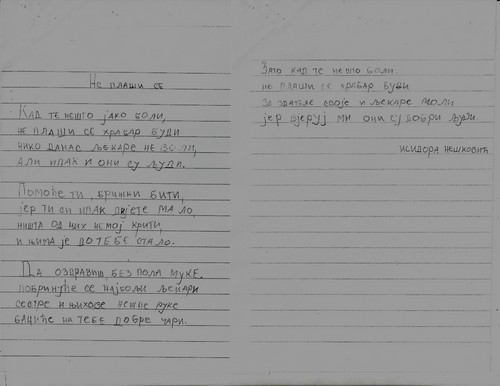 Не плаши се
Кад те нешто јако боли,
не плаши се храбар буди
нико данас љекаре не воли,
али ипак и они су људи.
Помоће ти, брижни бити,
јер ти си ипак дијете мало,
ништа од њих немој крити,
и њима је до тебе стало.
Да оздравиш без пола муке.
побринуће се најбољи љекари
сестре и њихове нежне руке
бациће на тебе добре чари.
Зато кад те нешто боли.
не плаши се храбар буди
за здравље своје и љекаре моли
јер вјеруј ми они су добри људи.
Исидора Нешковић